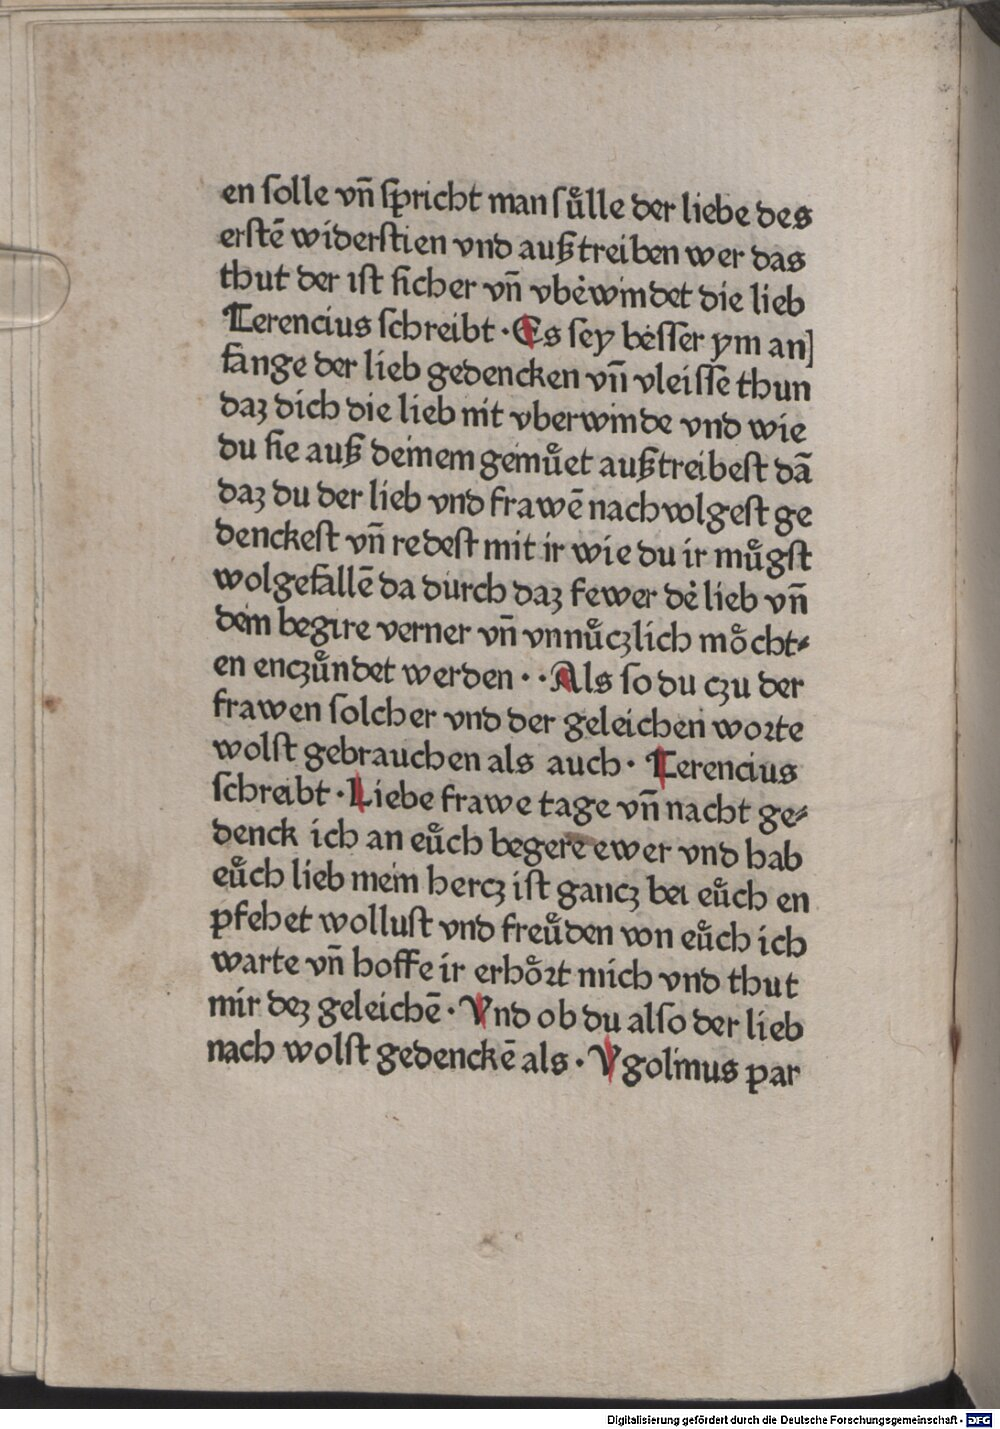 en ſolle vn̄ ſpricht man ſuͤlle der liebe des
erſtē widerſtien vnd auß treiben wer das
thut der ıſt ſicher vn̄ vbėwindet die lieb
Terencius ſchreibt · Es ſey beſſer ym an]
fange der lieb gedencken vn̄ vleiſſe thun
daz dich die lieb nit vberwinde vnd wie
du ſie auß deinem gemuͤet außtreibeſt dā
daz du der lieb vnd frawē nachvolgeſt ge
denckeſt vn̄ redeſt mit ir wie du ir muͤgſt
wolgefallē da durch daz fewer dė lieb vn̄
dem begıre verner vn̄ vnnuͤczlich moͤcht⸗
en enczuͤndet werden · · Als ſo du czu der
frawen ſolcher vnd der geleichen woꝛte
wolſt gebrauchen als auch · Terencius
ſchreibt · Liebe frawe tage vn̄ nacht ge⸗
denck ich an euͤch begere ewer vnd hab
euͤch lieb mein hercz iſt gancz beı euͤch en
pfehet wolluſt vnd freuͤden von euͤch ich
warte vn̄ hoffe ir erhoͤꝛt mich vnd thut
mir dez geleichē · Vnd ob du alſo der lieb
nach wolſt gedenckē als · Vgolinus par
Digitalisierung gefördert durch die Deutsche Forschungsgemeinschaft - DFG